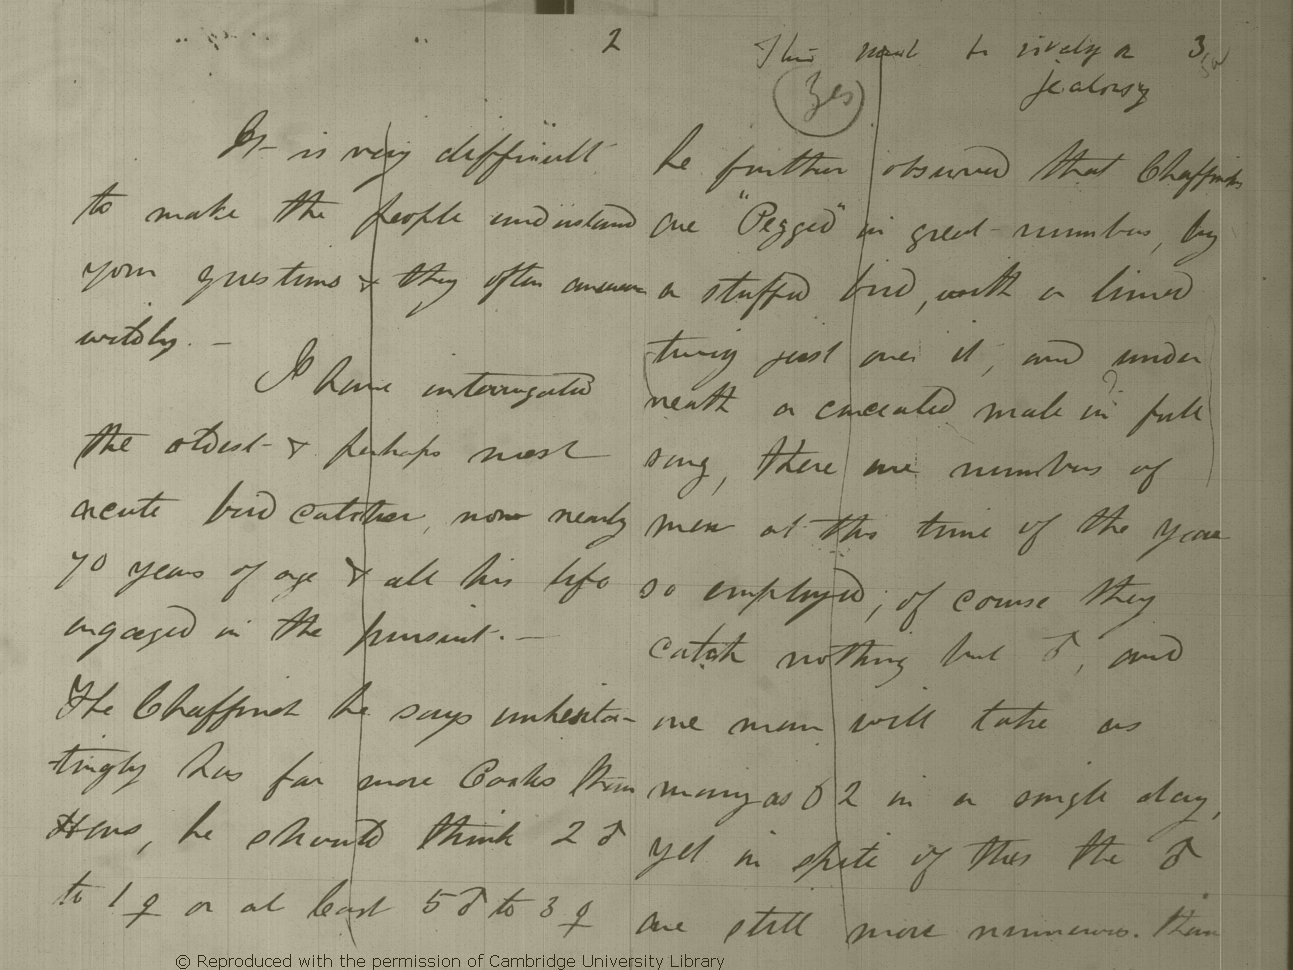 2
It is very difficult
to make the people understand
your questions & they often answer
wildly. —
I have interrogated
the oldest & perhaps most
acute bird catcher, now nearly
70 years of age & all his life
engaged in the pursuit. —
The Chaffinch he says unhesita-
-tingly has far more Cocks than
Hens, he should think 2 ♂
to 1 ♀ or at least 5 ♂ to 3 ♀
This must be rivalry or 3
jealousy
Yes
he further observed that Chaffinches
are "Pegged" in great numbers, by
a stuffed bird, with a limed
twig just over it, and under
neath a concealed male in full
song, there are numbers of
men at this time of the year
so employed; of course they
catch nothing but ♂, and
one man will take as
many as 62 in a single day,
yet in spite of this the ♂
are still more numerous than
© Reproduced with the permission of Cambridge University Library